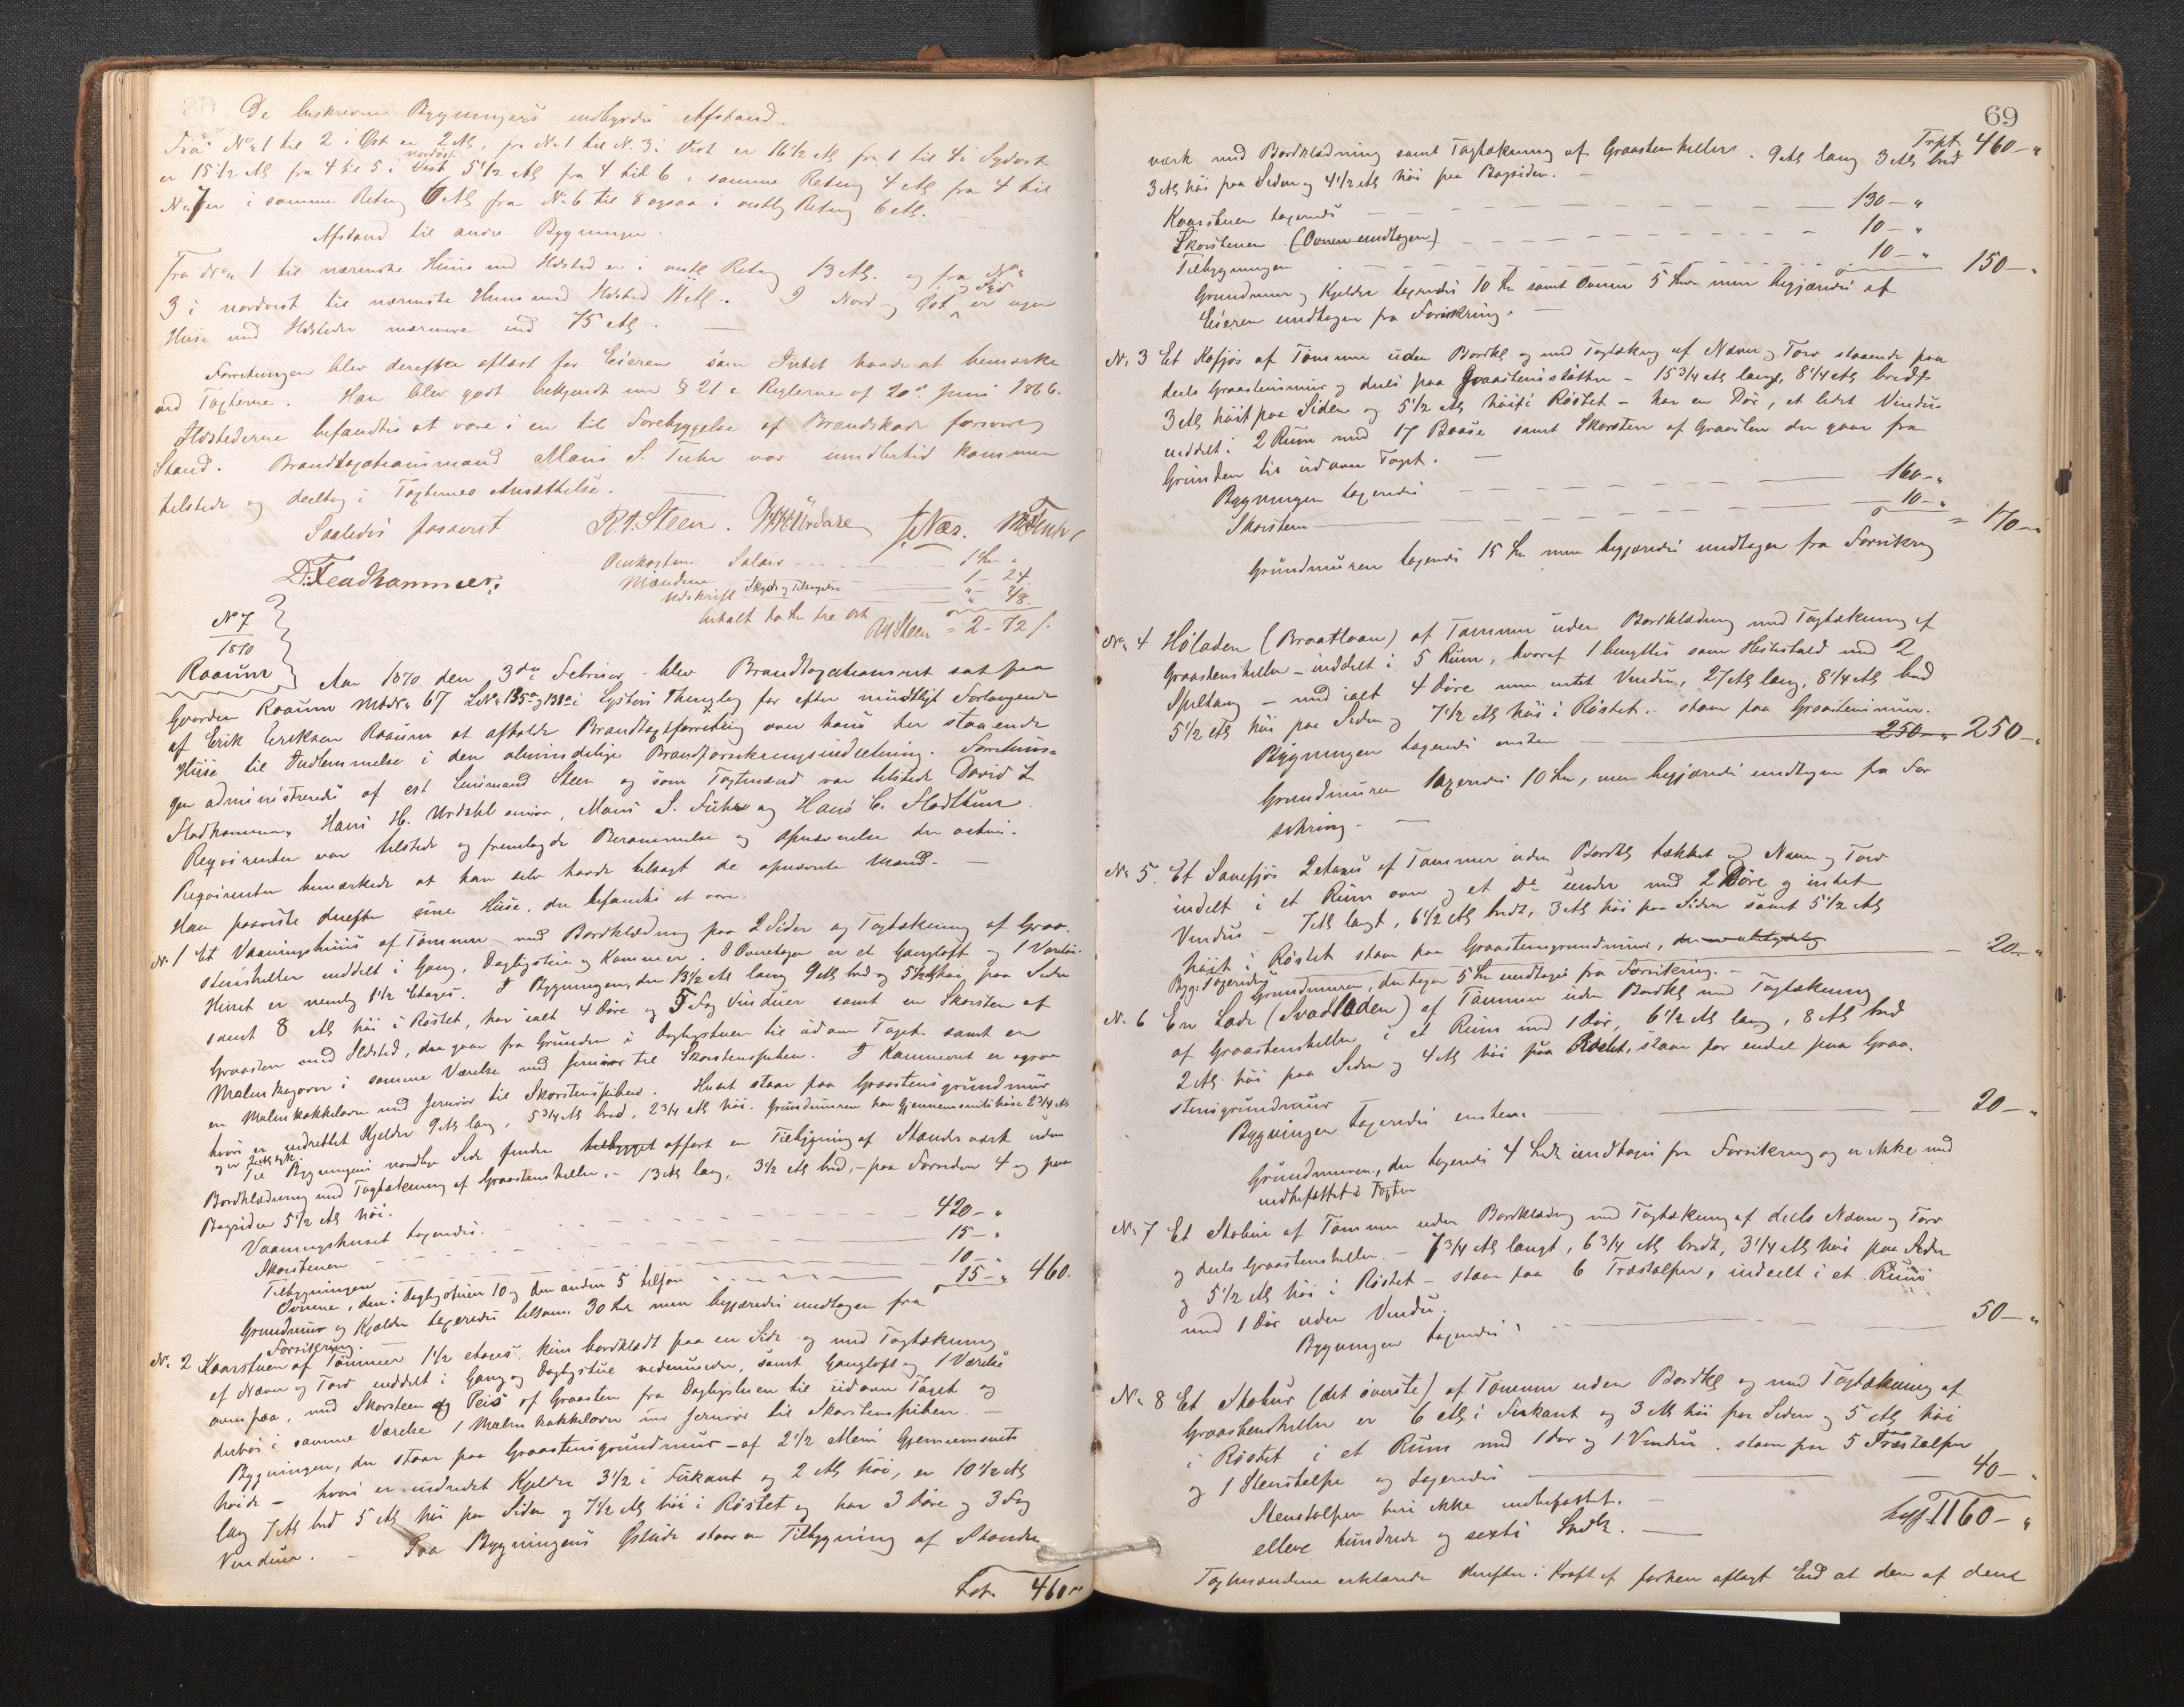 De beskrevne Bygningers indbyrdes Afstand.
Fra No 1 til 2 i Øst er 2 Al, fra No 1 til N. 3 i Vest er 16 1/2 Al fra 1 til 4 i Sydvest
er 15 1/2 Al fra 4 til 5 i nordøst 5 1/2 Al fra 4 til 6 i samme Retning 4 Al fra 4 til
No 7 er i samme Retning 6 Al fra No 6 til 8 ogsaa i vestlig Retning 6 Al.
Afstand til andre Bygninger.
Fra No 1 til nærmeste Huus med Ildsted er i vestl Retng 13 Al. og fra No
3 i nordvest til nærmeste Huus med Ildsted 11 Al. I Nord og Øst og Syd er ingen
Huse med Ildsteder nærmere end 75 Al. —
Forretningen blev derefter oplæst for Eieren som Intet havde at bemærke
ved Taxterne. Han blev gjort bekjendt med § 21 i Reglerne af 20de Juni 1866.
Ildstederne befandtes at være i en til Forebyggelse af Brandskade forsvarlig
Stand. Brandtaxationsmand Mons S. Fuhr var imidlertid kommen
tilstede og deeltog i Taxternes Ansættelse.
Saaledes passeret R. Steen. HHUrdahl J. Næs. MSFuhr
D. Stadhammer.
Omkosten Salair - - - 1 Spd „
Mændene 1 - 24
Udskrift Skyds og Tilsigelse „ - 48
Udskrift „
RSteen = 2 - 72 ß.
No 7
1870
Raaum
Aar 1870 den 3die Februar blev Brandtaxationsret sat paa
Gaarden Raaum Matr. 67 LNo 135a og 138a i Lysters Thinglag for efter mundtligt Forlangende
af Erik Eriksen Raaum at afholde Brandtaxtforretning over hans her staaende
Huse til Indlemmelse i den almindelige Brandforsikringsindretning. Forretnin-
gen administreredes af cst Lensmand Steen og som Taxtmænd var tilstede David L
Stadhammer, Hans H. Urdahl senior, Mons S. Fuhr og Hans C. Flodthun.
Reqvirenten var tilstede og fremlagde Berammelse og Opnævnelse der acteres.
Reqvirenten bemærkede at han selv havde tilsagt de opnævnte Mænd. —
Han paaviste derefter sine Huse, der befandtes at være.
No 1 Et Vaaningshuus af Tømmer med Bordklædning paa 2 Sider og Tagtækning af Graa-
steensheller inddelt i Gang, Dagligstue og Kammer. I Overetagen er et Gangloft og 1 Værelse.
Huset er nemlig 1 1/2 Etages. I Bygningen, der 13 1/2 Al lang 9 Al bred og 5 1/2 Al høi, paa Siden
samt 8 Al høi i Røstet, har ialt 4 Døre og 5 Fag Vinduer samt en Skorsten af
Graasten med Ildsted, der gaar fra Grunden i Dagligstuen til udover Taget samt en
Malmkagovn i samme Værelse med Jernrør til Skorstenspiben. I Kammeret er ogsaa
en Malmkakkelovn med Jernrør til Skorstenspiben. Huset staar paa Graastensgrundmur
hvori er indrettet Kjelder 9 Al lang, 5 3/4 Al bred, 2 3/4 Al høi. Grundmuren har Gjennemsnitshøide 2 3/4 Al
Til Bygningens nordlige Side findes opført en Tilbygning af Standerværk uden
Bordklædning med Tagtækning af Graasteensheller. - 13 Al lang, 3 1/2 Al bred, - paa Forsiden 4 og paa
Bagsiden 5 1/2 Al høi.
Vaaningshuset taxeredes. - - - 420 - „
Skorstenen - - - 15 - „
Tilbygningen - - - 10 - „
Ovnene, den i Dagligstuen 10 og den anden 5 tilsam - - - 15 - „ 460.
Grundmur og Kjælder taxeredes tilsam. 30 Spd men begjæredes undtagen fra
Forsikring.
No 2 Kaarstuen af Tømmer 1 1/2 etages, kun bordklædt paa en Side og med Tagtækning
af Næver og Torv inddelt i Gang og Dagligstue nedenunder, samt Gangloft og 1 Værelse
ovenpaa, med Skorsteen og Peis af Graasten fra Dagligstuen til udover Taget og
derhos i samme Værelse 1 Malmkakkelovn med Jernrør til Skorstenspiben. —
Bygningen, der staar paa Graasteensgrundmur - af 2 1/2 Alens Gjennemsnits
høide - hvori er indredet Kjelder 3 1/2 i Firkant og 2 Al høi, er 10 1/2 Al
lang 7 Al bred 5 Al høi paa Siden og 7 1/2 Al høi i Røstet og har 3 Døre og 3 Fag
Vinduer. - Paa Bygningens Østside staar en Tilbygning af Stander
Lat. 460 „
69
Trpt. 460 - „
værk med Bordklædning samt Tagtækning af Graasteensheller. 9 Al lang 3 Al bred
3 Al høi paa Siden og 4 1/2 Al høi paa Bagsiden. —
Kaarstuen taxeredes - - - 130 - „
Skorstenen (Ovnen undtagen) - - - 10 - „
Tilbygningen - - - 10 - „ 150 - „
Grundmur og Kjelder taxeredes 10 Spd samt Ovnen 5 Spd men begjæredes af
Eieren undtagen fra Forsikring. —
No 3 Et Kofjøs af Tømmer uden Bordkl og med Tagtækng af Næver og Torv staaende paa
deels Graasteensmur og deels paa Graasteensstøtter - 15 3/4 Al langt, 8 1/4 Al bredt
3 Al høit paa Siden og 5 1/2 Al høit i Røstet - har en Dør, et lidet Vindue
inddelt i 2 Rum med 17 Baase samt Skorsten af Graasten der gaar fra
Grunden til udover Taget. —
Bygningen taxeredes - - - 160 - „
Skorstenen - - - 10 - „ = 170 - „
Grundmuren taxeredes 15 Spd men begjæredes undtagen fra Forsikring
No 4 Høladen (Braatloen) af Tømmer uden Bordklædning med Tagtækning af
Graasteensheller - inddelt i 5 Rum, hvoraf 1 benyttes som Hestestald med 2
Spiltaug - med ialt 4 Døre men intet Vindue, 27 Al lang, 8 1/4 Al bred
5 1/2 Al høi paa Siden og 7 1/2 Al høi i Røstet. - staar paa Graasteensmur.
Bygningen taxeredes ensten 250 - „ 250 - „
Grundmuren taxeredes 10 Spd, men begjæredes undtagen fra For
sikring. —
No 5. Et Sauefjøs 2 etages af Tømmer uden Bordkl tækket med Næver og Torv
indelt i et Rum oven og et Do under med 2 Døre og intet
Vindue - 7 Al langt, 6 1/2 Al bredt, 3 Al høi paa Siden samt 5 1/2 Al
høit i Røstet staar paa Graasteensgrundmur,
Bygn: taxeredes 20 - „
Grundmuren, der taxer 5 Spd undtages fra Forsikring. -
No 6 En Lade (Svadladen) af Tømmer uden Bordkl med Tagtækning
af Graasteensheller i et Rum med 1 Dør, 6 1/2 Al lang, 8 Al bred
2 Al høi paa Siden og 4 Al høi paa Røstet, staar for endel paa Graa-
stensgrundmur
Bygningen taxeredes ensten 20 - „
Grundmuren, der taxeredes 4 Spd undtages fra Forsikring og er ikke med
indbefattet i Taxten
No 7 Et Stabur af Tømmer uden Bordklædng med Tagtækning af deels Næver og Torv
og deels Graasteensheller. - 7 3/4 Al langt, 6 3/4 Al bredt, 3 1/4 Al høi paa Siden
og 5 1/2 Al høi i Røstet - staar paa 6 Træstolper, indeelt i et Rum
med 1 Dør uden Vindu.
Bygningen taxeredes 50 - „
No 8 Et Stabur (det øverste) af Tømmer uden Bordkl og med Tagtækning af
Graasteensheller er 6 Al i Firkant og 3 Al høi paa Siden og 5 Al høi
i Røstet i et Rum med 1 Dør og 1 Vindue, staar paa 5 Træstolper
og 1 Steenstolpe og taxeredes 40 - „
Stenstolpen heri ikke indbefattet. —
elleve hundrede og sexti Spd. — 1160 - „
Taxtmændene erklærede derefter i Kraft af forhen aflagt Eed at den af dem